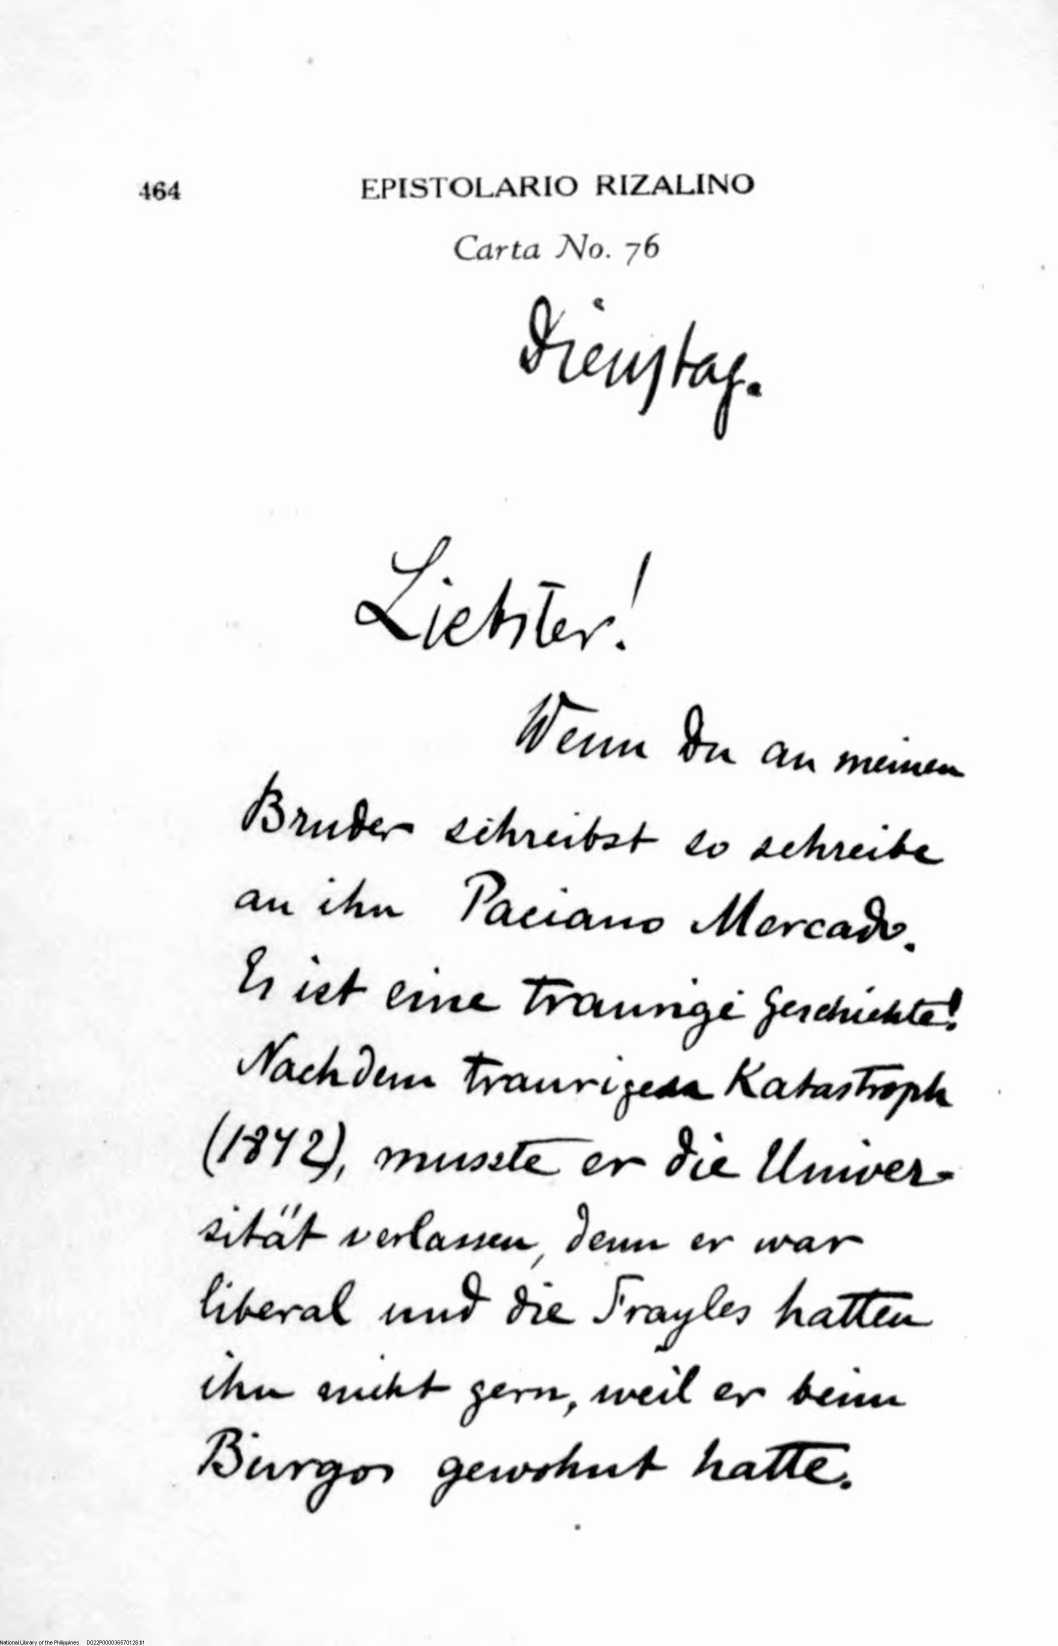 464 EPISTOLARIO RIZALINO
Carta No. 76
Dienstag.
Liebster!
Wenn Du an meinen
Bruder schreibst so schreibe
an ihn Paciano Mercado.
Es ist eine traurige Geschichte!
Nach dem traurigen Katastroph
(1872), musste er die Univer-
sität verlassen, denn er war
liberal und die Frayles hatten
ihn nicht gern, weil er beim
Burgos gewohnt hatte.
National Library of the Philippines